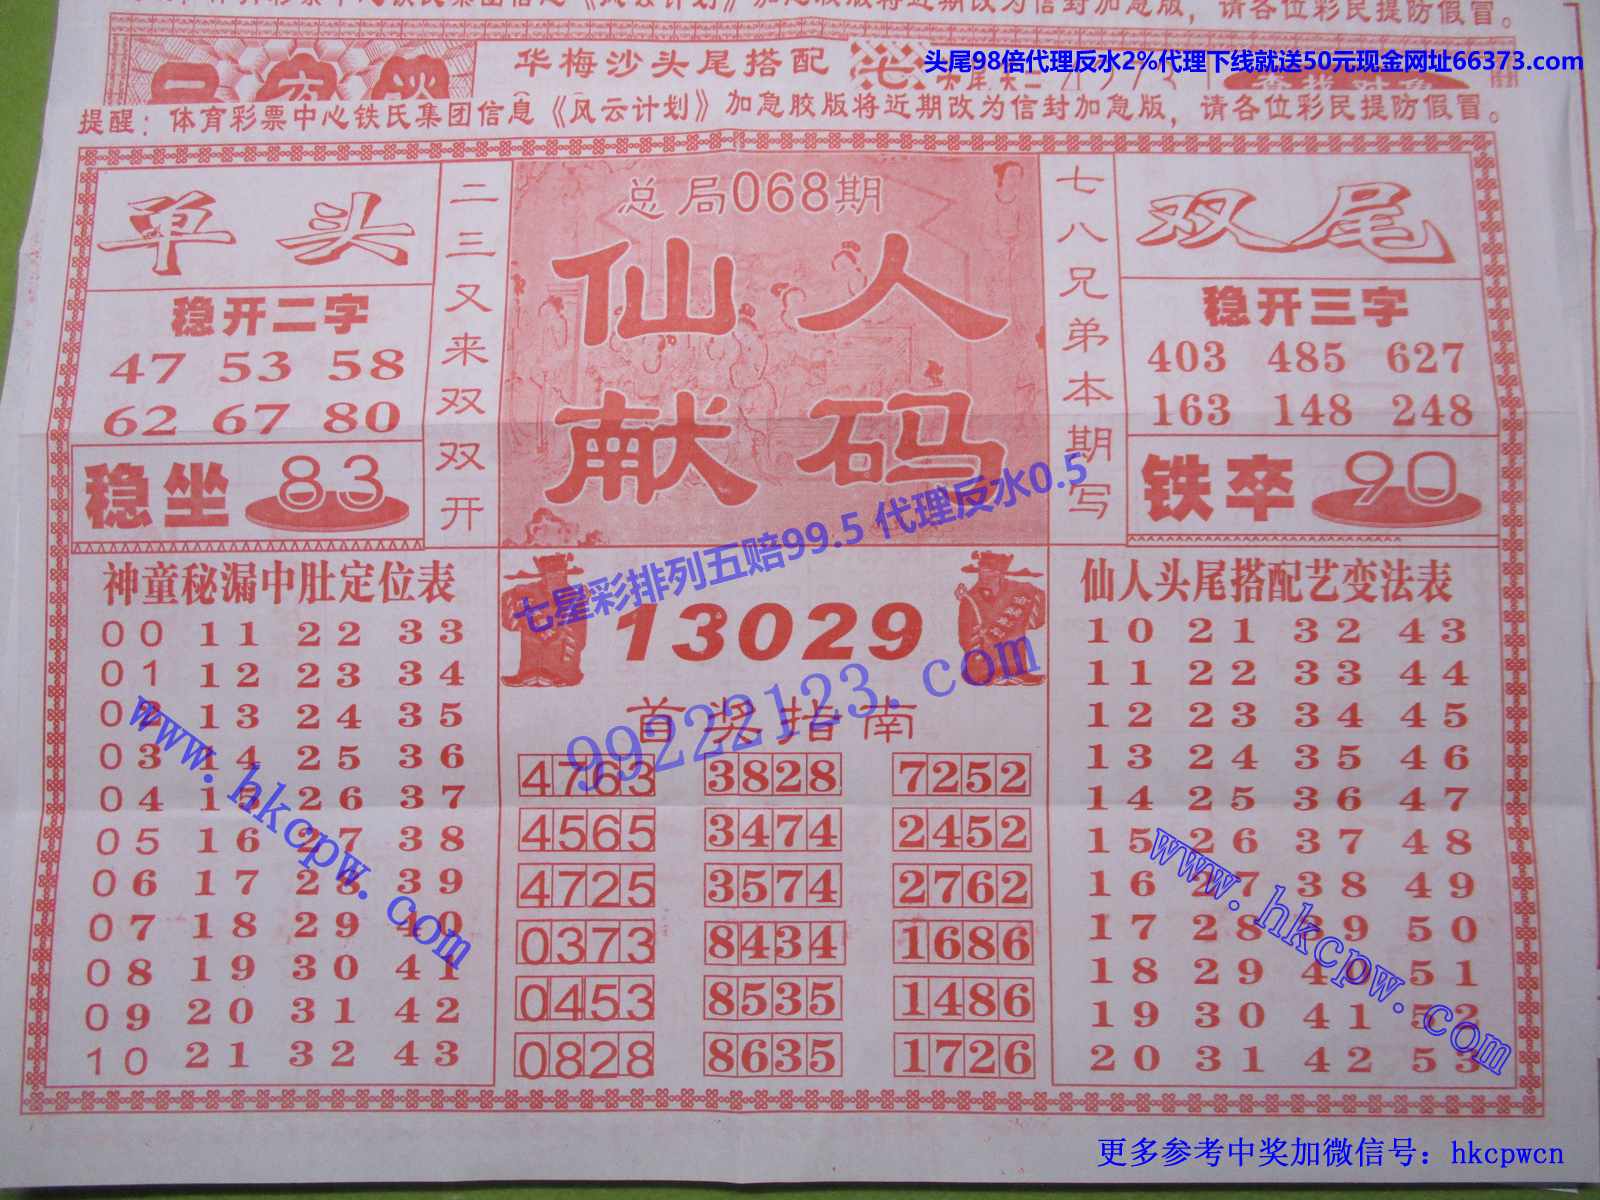 华梅沙头尾搭配
头尾98倍代理反水2%代理下线就送50元现金网址66373.com
提醒：体育彩票中心铁氏集团信息《风云计划》加急胶版将近期改为信封加急版，请各位彩民提防假冒。
单头
稳开二字
47 53 58
62 67 80
稳坐 83
二三又来双双开
总局068期
仙人
献码
七八兄弟本期写
双尾
稳开三字
403 485 627
163 148 248
铁卒 90
七星彩排列五赔99.5 代理反水0.5
99222123.com
神童秘漏中肚定位表
00 11 22 33
01 12 23 34
02 13 24 35
03 14 25 36
04 15 26 37
05 16 27 38
06 17 28 39
07 18 29 40
08 19 30 41
09 20 31 42
10 21 32 43
www.hkcpw.com
13029
首奖指南
4763 3828 7252
4565 3474 2452
4725 3574 2762
0373 8434 1686
0453 8535 1486
0828 8635 1726
仙人头尾搭配艺变法表
10 21 32 43
11 22 33 44
12 23 34 45
13 24 35 46
14 25 36 47
15 26 37 48
16 27 38 49
17 28 39 50
18 29 40 51
19 30 41 52
20 31 42 53
www.hkcpw.com
更多参考中奖加微信号：hkcpwcn